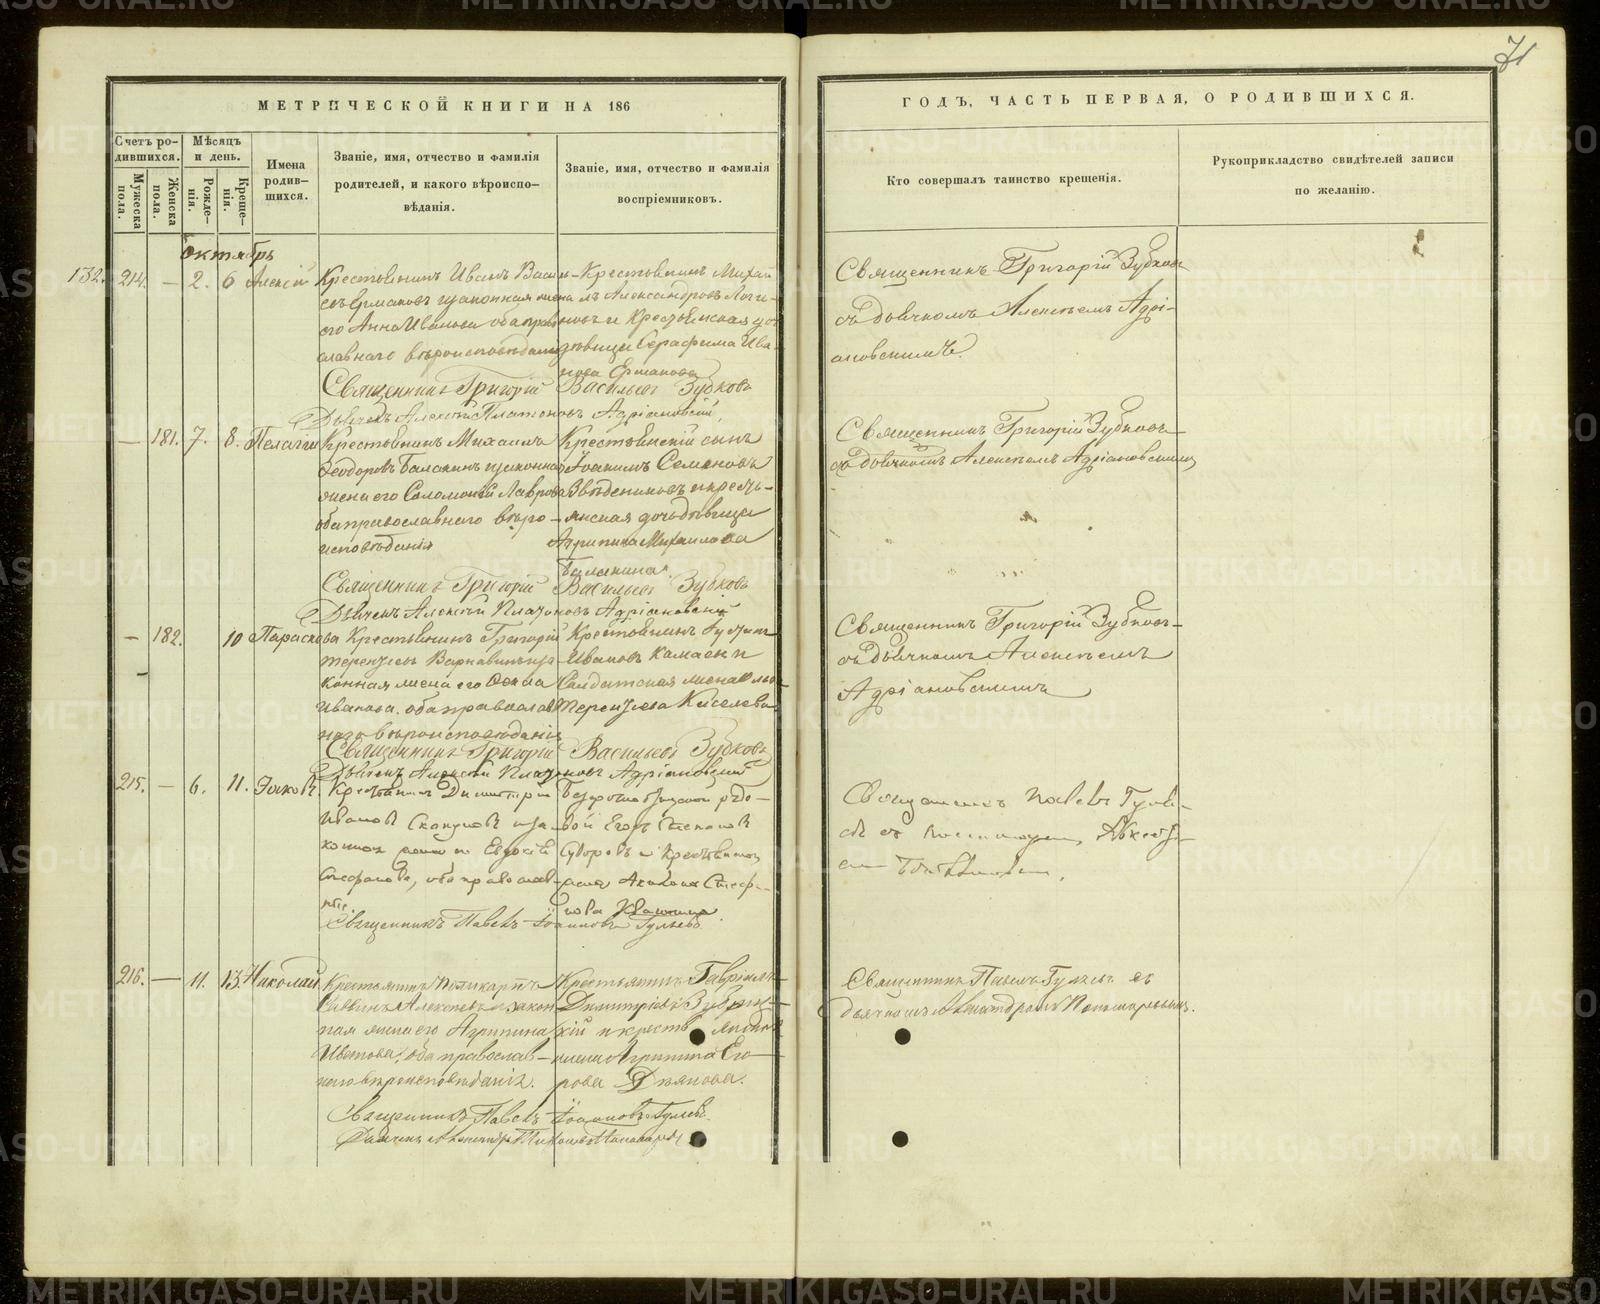 71
МЕТРИЧЕСКОЙ КНИГИ НА 186
ГОДЪ, ЧАСТЬ ПЕРВАЯ, О РОДИВШИХСЯ.
Счетъ ро-
дившихся.
Мужеска
пола.
Женска
пола.
Мѣсяцъ
и день.
Рожде-
нія.
Креще-
нія.
Имена
родив-
шихся.
Званіе, имя, отчество и фамилія
родителей, и какого вѣроиспо-
вѣданія.
Званіе, имя, отчество и фамилія
воспріемниковъ.
Кто совершалъ таинство крещенія.
Рукоприкладство свидѣтелей записи
по желанію.
октябрь
132. 214. — 2. 6 Алексій
Крестьянинъ Иванъ Василь-
евъ Ермаковъ и законная жена
его Анна Иванова оба право
славнаго вѣроисповѣданія
Крестьянинъ Михаи
лъ Александровъ
новъ и Крестьянская до
дѣвица Серафима Ива-
нова Ермакова
Священникъ Григорій Зубковъ
съ дьячкомъ Алексѣемъ Адрі-
ановскимъ
Священникъ Григорій Васильевъ Зубковъ
Дьячекъ Алексѣй Платоновъ Адріановскій
— 181. 7. 8. Пелагія
Крестьянинъ Михаилъ
Ѳеодоровъ Балакинъ и законная
жена его Соломонія Лаврова
оба православнаго вѣро-
исповѣданія
Крестьянскій сынъ
Іоакимъ Семеновъ
и кресть-
янская дочь дѣвица
Агрипина Михаилова
Балакина
Священникъ Григорій Зубковъ
съ дьячкомъ Алексѣемъ Адріановскимъ
Священникъ Григорій Васильевъ Зубковъ
Дьячекъ Алексѣй Платоновъ Адріановскій
— 182. 10 Параскева
Крестьянинъ Григорій
Терентьевъ и за-
конная жена его Ѳекла
Иванова оба православ
наго вѣроисповѣданія
Крестьянинъ
Ивановъ и
Солдатская жена
Терентьева Киселева
Священникъ Григорій Зубковъ
съ дьячкомъ Алексѣемъ
Адріановскимъ
Священникъ Григорій Васильевъ Зубковъ
Дьячекъ Алексѣй Платоновъ Адріановскій
215. — 6. 11. Іаковъ
Крестьянинъ Димитрій
Ивановъ и за-
конная жена его Евдокія
Стефанова, оба православ-
ные.
рядо-
вой Егоръ Степановъ
Суворовъ и Крестьянская
Стефа-
нова
Священникъ Павелъ Гуля-
евъ съ
Священникъ Павелъ Іоанновъ Гуляевъ
216. — 11. 13. Николай
Крестьянинъ Поликарпъ
Саввинъ Алексѣевъ и закон
ная жена его Агрипина
Иванова, оба православ-
наго вѣроисповѣданія.
Крестьянинъ Гавріилъ
Димитріевъ
и крестьянская
жена Агрипина Его-
рова Дьякова.
Священникъ Павелъ Гуляевъ съ
дьячкомъ Александромъ Пономаревымъ.
Священникъ Павелъ Іоанновъ Гуляевъ
METRIKI.GASO-URAL.RU